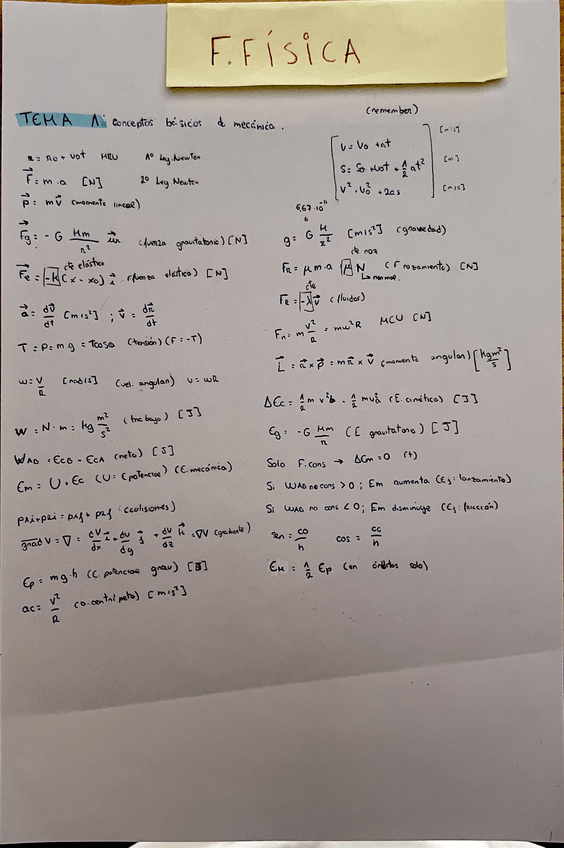 F.FÍSICA
TEMA 1: Conceptos básicos d mecánica.
(remember)
r = ro + vot MRU 1º Ley Newton
F⃗ = m·a [N] 2º Ley Newton
p⃗ = mv⃗ (momento lineal)
F⃗g = -G Mm/r² u⃗r (fuerza gravitatoria) [N]
cte elástica
F⃗e = -k(x - xo) i⃗ (fuerza elástica) [N]
a⃗ = dv⃗/dt [m/s²] ; v⃗ = dr⃗/dt
T = P = m·g = Tcosα (tensión) (F = -T)
ω = v/R [rad/s] (vel. angular) v = ωR
W = N·m = kg m²/s² (trabajo) [J]
WAB = EcB - EcA (neto) [J]
Em = U + Ec (U = Epotencial) (E. mecánica)
p1i + p2i = p1f + p2f (colisiones)
grad V = ∇ = dV/dx i⃗ + dV/dy j⃗ + dV/dz k⃗ = ∇V (gradiente)
Ep = mg·h (E. potencial grav) [J]
ac = v²/R (a. centrípeta) [m/s²]
v = vo + at [m/s]
S = So + vot + 1/2 at² [m]
v² = vo² + 2as [m/s]
6,67·10⁻¹¹
g = G M/r² [m/s²] (gravedad)
cte roz
FR = μ m·a μ N (F rozamiento) [N]
normal
cte
F⃗R = -λ v⃗ (fluidos)
Fn = m v²/R = mω²R MCU [N]
L⃗ = r⃗ × p⃗ = m r⃗ × v⃗ (momento angular) [kgm²/s]
ΔEc = 1/2 m v²b - 1/2 mv²a (E. cinética) [J]
Eg = -G Mm/r (E gravitatoria) [J]
Solo F. cons → ΔEm = 0
Si WAB no cons > 0 ; Em aumenta (Ej: lanzamiento)
Si WAB no cons < 0 ; Em disminuye (Ej: fricción)
sen = co/h cos = cc/h
EM = 1/2 Ep (en órbitas solo)